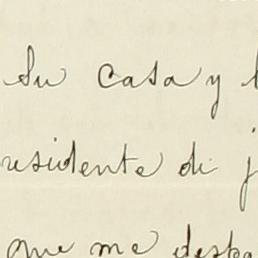 Su casa y l
residente di j
que me despa